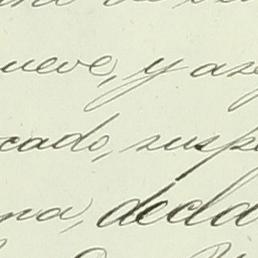 ueve, y as
cado, susp
na, decla